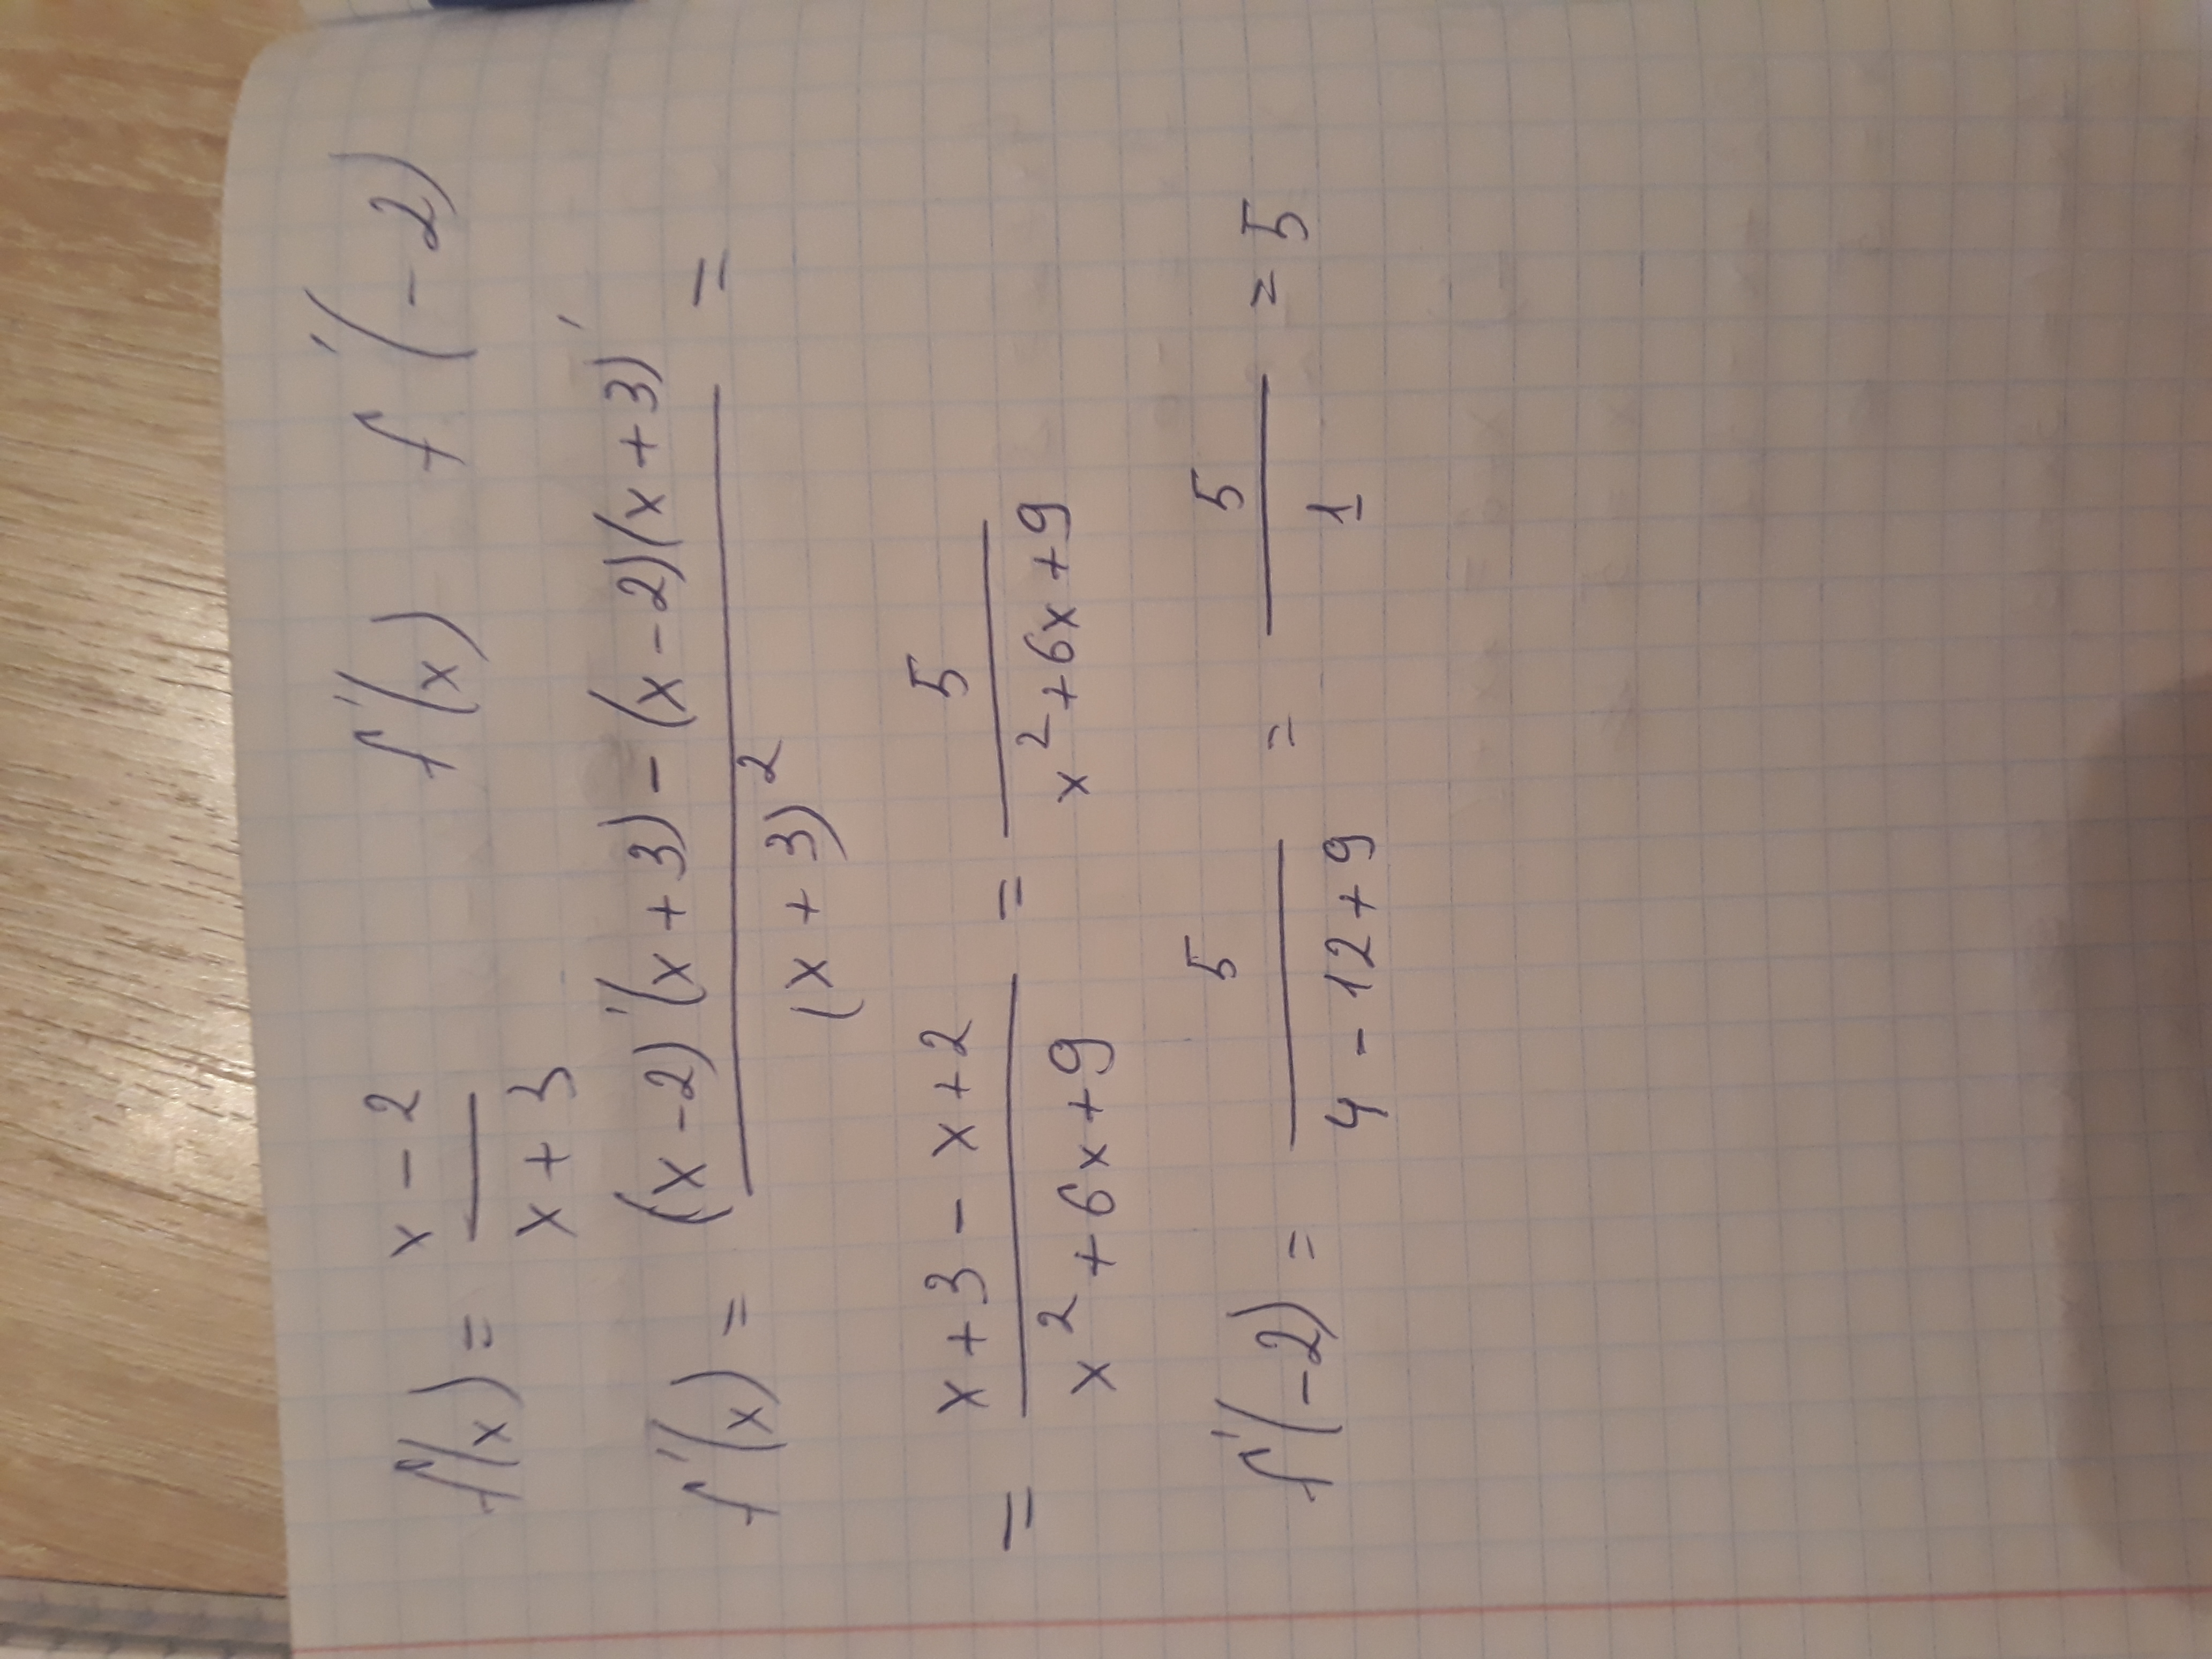 f(x) = (x-2)/(x+3) f'(x) f'(-2)
f'(x) = ((x-2)'(x+3)-(x-2)(x+3)')/(x+3)² =
= (x+3-x+2)/(x²+6x+9) = 5/(x²+6x+9)
f'(-2) = 5/(4-12+9) = 5/1 = 5